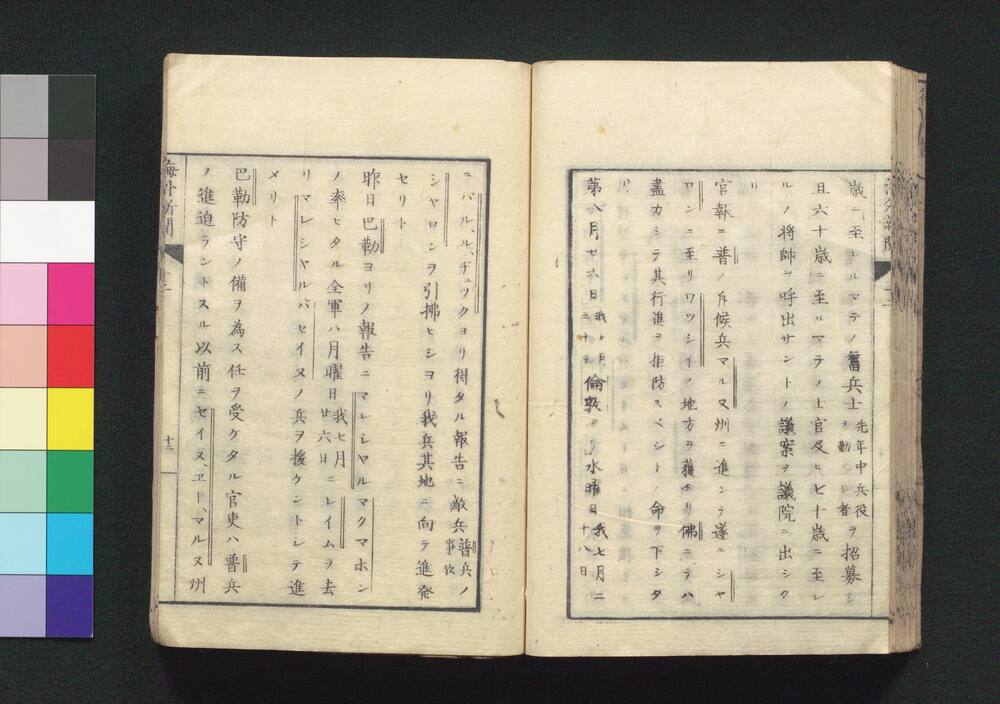 歳ニ至ルマテノ舊兵士先年中兵役ヲ勤シ者ヲ招募シ
且六十歳ニ至ルマテノ士官及ヒ七十歳ニ至レ
ルノ将帥ヲ呼出サントノ議案ヲ議院ニ出シタ
リ
官報ニ普ノ斥候兵マル又州ニ進ンテ遂ニシヤ
ロンニ至リワツシイノ地方ヲ獲タリ佛ニテハ
盡力シテ其行進ヲ拒防スベシトノ命ヲ下シタ
リ
第八月廿六日倫敦ヨリ水曜日我七月二十八日
ニバル、ル、ヂュックヨリ得タル報告ニ敵兵普兵ノ事歟
シヤロンヲ引拂ヒシヨリ我兵其地ニ向テ進発
セリト
昨日巴勒ヨリノ報告ニマレシヤルマクマホン
ノ率ヒタル全軍ハ月曜日我七月廿六日ニレイムヲ去
リマレシヤルバセイヌノ兵ヲ援ケントシテ進
メリト
巴勒防守ノ備ヲ為ス任ヲ受ケタル官吏ハ普兵
ノ進迫ラントスル以前ニセイヌ、エー、マルヌ州
海外新聞
十三